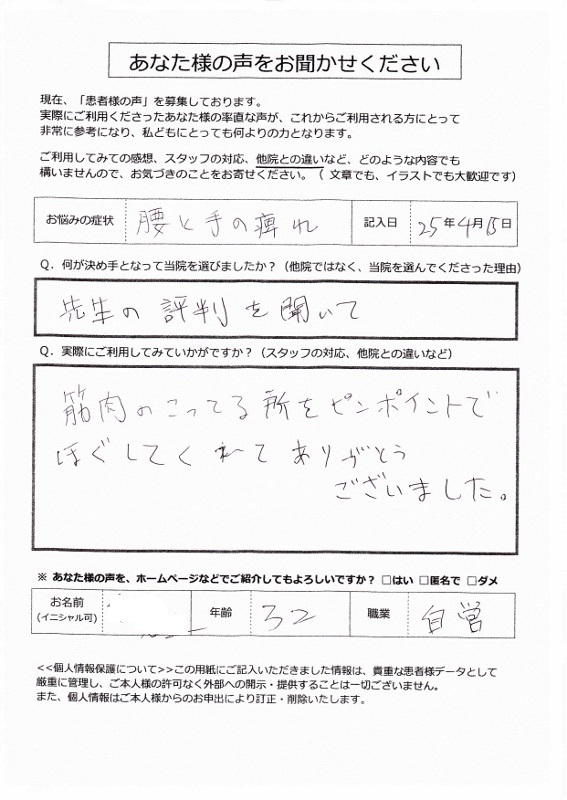 あなた様の声をお聞かせください
現在、「患者様の声」を募集しております。
実際にご利用くださったあなた様の率直な声が、これからご利用される方にとって
非常に参考になり、私どもにとっても何よりの力となります。
ご利用してみての感想、スタッフの対応、他院との違いなど、どのような内容でも
構いませんので、お気づきのことをお寄せください。（ 文章でも、イラストでも大歓迎です）
お悩みの症状 腰と手の痺れ 記入日 25年4月15日
Q．何が決め手となって当院を選びましたか？（他院ではなく、当院を選んでくださった理由）
先生の評判を聞いて
Q．実際にご利用してみていかがですか？（スタッフの対応、他院との違いなど）
筋肉のこってる所をピンポイントで
ほぐしてくれてありがとう
ございました。
※ あなた様の声を、ホームページなどでご紹介してもよろしいですか？ □はい □匿名で □ダメ
お名前 年齢 32 職業 自営
(イニシャル可)
<<個人情報保護について>>この用紙にご記入いただきました情報は、貴重な患者様データとして
厳重に管理し、ご本人様の許可なく外部への開示・提供することは一切ございません。
また、個人情報はご本人様からのお申出により訂正・削除いたします。